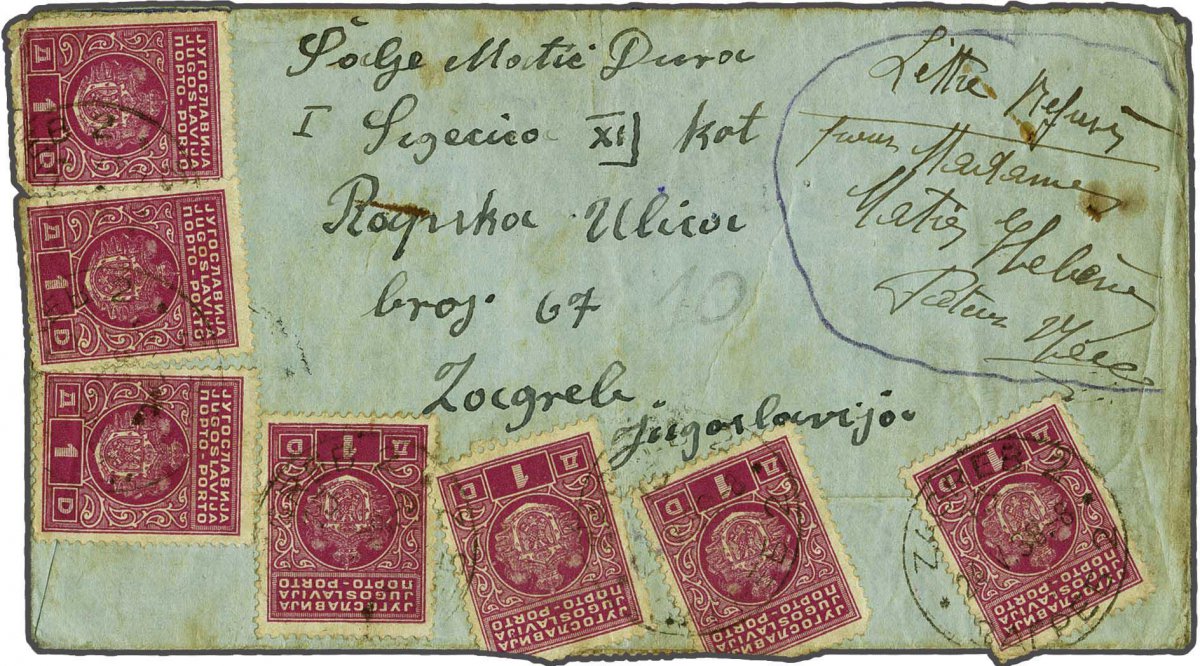 Šalje Matić Đura
I Sigečica XI kot
Rapska Ulica
broj 67
Zagreb
Jugoslavija
10
Lettre Refusée
pour Madame
Matić
ЈУГОСЛАВИЈА
JUGOSLAVIJA
ПОРТО-PORTO
Д 1 D
ЈУГОСЛАВИЈА
JUGOSLAVIJA
ПОРТО-PORTO
Д 1 D
ЈУГОСЛАВИЈА
JUGOSLAVIJA
ПОРТО-PORTO
Д 1 D
Д 1 D
ЈУГОСЛАВИЈА
JUGOSLAVIJA
ПОРТО-PORTO
Д 1 D
ЈУГОСЛАВИЈА
JUGOSLAVIJA
ПОРТО-PORTO
Д 1 D
ЈУГОСЛАВИЈА
JUGOSLAVIJA
ПОРТО-PORTO
ZAGREB 2
Д 1 D
ЈУГОСЛАВИЈА
JUGOSLAVIJA
ПОРТО-PORTO